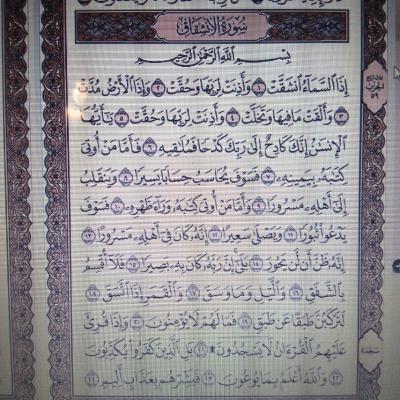 سُورَةُ الانشِقَاقِ
بِسْمِ اللَّهِ الرَّحْمَٰنِ الرَّحِيمِ
إِذَا السَّمَاءُ انشَقَّتْ ١ وَأَذِنَتْ لِرَبِّهَا وَحُقَّتْ ٢ وَإِذَا الْأَرْضُ مُدَّتْ
٣ وَأَلْقَتْ مَا فِيهَا وَتَخَلَّتْ ٤ وَأَذِنَتْ لِرَبِّهَا وَحُقَّتْ ٥ يَٰأَيُّهَا
الْإِنسَٰنُ إِنَّكَ كَادِحٌ إِلَىٰ رَبِّكَ كَدْحًا فَمُلَٰقِيهِ ٦ فَأَمَّا مَنْ أُوتِيَ
كِتَٰبَهُ بِيَمِينِهِ ٧ فَسَوْفَ يُحَاسَبُ حِسَابًا يَسِيرًا ٨ وَيَنقَلِبُ
إِلَىٰ أَهْلِهِ مَسْرُورًا ٩ وَأَمَّا مَنْ أُوتِيَ كِتَٰبَهُ وَرَاءَ ظَهْرِهِ ١٠ فَسَوْفَ
يَدْعُوا ثُبُورًا ١١ وَيَصْلَىٰ سَعِيرًا ١٢ إِنَّهُ كَانَ فِي أَهْلِهِ مَسْرُورًا ١٣
إِنَّهُ ظَنَّ أَن لَّن يَحُورَ ١٤ بَلَىٰ إِنَّ رَبَّهُ كَانَ بِهِ بَصِيرًا ١٥ فَلَا أُقْسِمُ
بِالشَّفَقِ ١٦ وَاللَّيْلِ وَمَا وَسَقَ ١٧ وَالْقَمَرِ إِذَا اتَّسَقَ ١٨
لَتَرْكَبُنَّ طَبَقًا عَن طَبَقٍ ١٩ فَمَا لَهُمْ لَا يُؤْمِنُونَ ٢٠ وَإِذَا قُرِئَ
عَلَيْهِمُ الْقُرْءَانُ لَا يَسْجُدُونَ ۩ ٢١ بَلِ الَّذِينَ كَفَرُوا يُكَذِّبُونَ
٢٢ وَاللَّهُ أَعْلَمُ بِمَا يُوعُونَ ٢٣ فَبَشِّرْهُم بِعَذَابٍ أَلِيمٍ ٢٤
الحزب
٥٩
سجدة